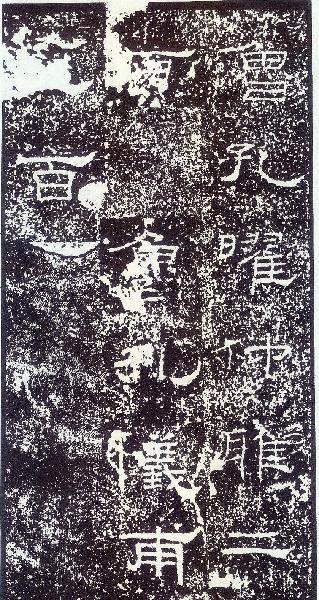 魯孔曜仲雅二
百魯孔儀甫
百